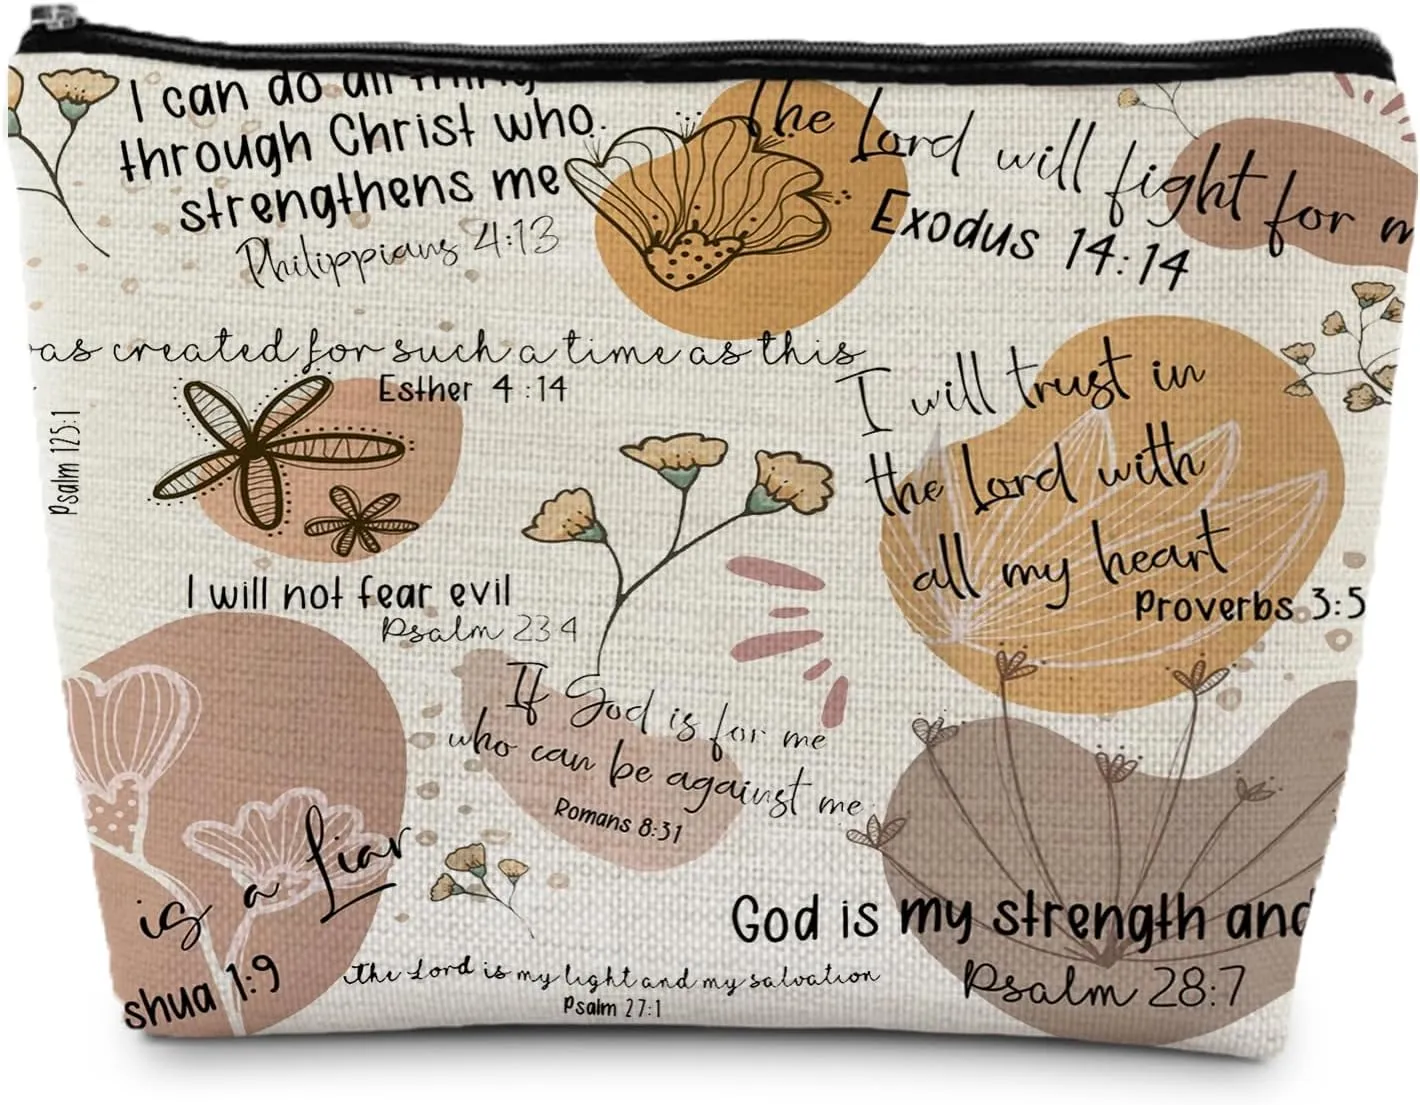 I can do all thing
through Christ who
strengthens me
Philippians 4:13
The Lord will fight for m
Exodus 14:14
as created for such a time as this
Esther 4:14
Psalm 125:1
I will trust in
the Lord with
all my heart
Proverbs 3:5
I will not fear evil
Psalm 23 4
If God is for me
who can be against me
Romans 8:31
is a Liar
shua 1:9
God is my strength and
Psalm 28:7
the Lord is my light and my salvation
Psalm 27:1